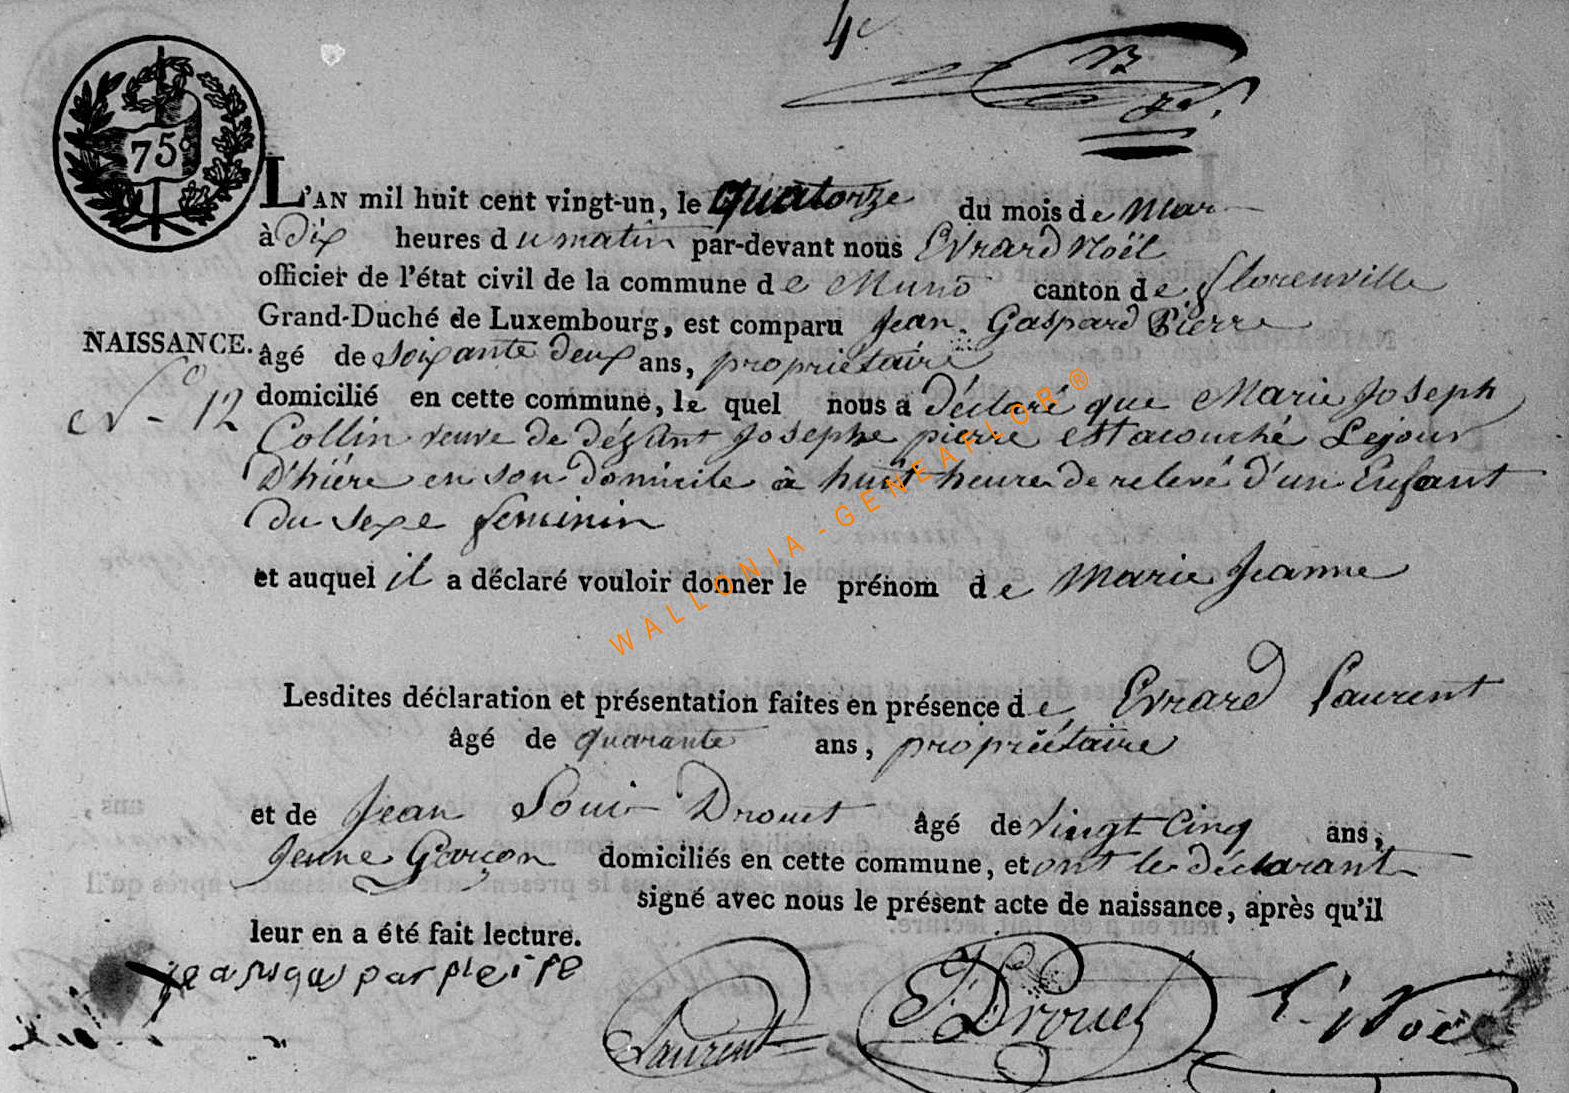 4e
75c
L'AN mil huit cent vingt-un, le quatorze du mois de Mars
à dix heures du matin par-devant nous Evrard Noël
officier de l'état civil de la commune de Muno canton de florenville
Grand-Duché de Luxembourg, est comparu Jean Gaspard Pierre
NAISSANCE.
âgé de soixante deux ans, propriétaire
No 12
domicilié en cette commune, le quel nous a déclaré que Marie Joseph
Collin veuve de défunt Josephe pierre est acouché Le jour
D'hiére en son domicile à huit heure de relevé d'un Enfant
du sexe feminin
et auquel il a déclaré vouloir donner le prénom de Marie Jeanne
Lesdites déclaration et présentation faites en présence de Evrard Laurent
âgé de quarante ans, propriétaire
et de Jean Louis Drouet âgé de vingt cinq ans,
jeune Garçon domiciliés en cette commune, et ont le déclarant
signé avec nous le présent acte de naissance, après qu'il
leur en a été fait lecture.
Laurent J L Drouet E. Noël
WALLONIA-GENEAFLOR®